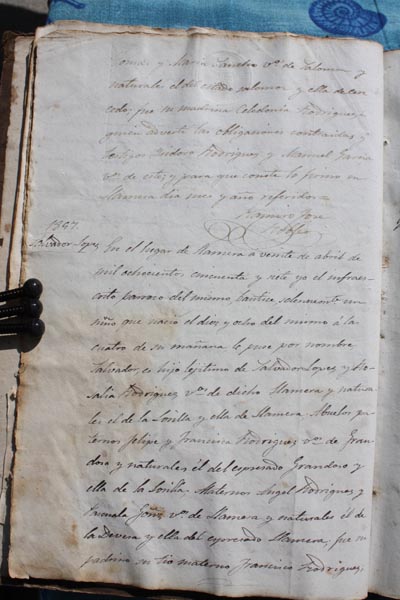 Tomas y Maria Sanchez v.ᵒˢ de Palomar y
naturales el del citado palomar y ella de
cedo, fue su madrina Celedonia Rodriguez, a
quien adverti las obligaciones contraidas y
testigos Isidoro Rodriguez y Manuel Garcia
v.ᵒˢ de esta y para que conste lo firmo en
Llamera dia mes y año referidos=
Ramiro Jose
1857.
Salvador Lopez
En el lugar de Llamera a veinte de abril de
mil ochocientos cincuenta y siete yo el infraes-
crito parroco del mismo, bautice solemnemente un
niño que nacio el diez y ocho del mismo á la
cuatro de su mañana le puse por nombre
Salvador, es hijo legitimo de Salvador Lopez y Ro-
salia Rodriguez v.ᵒˢ de dicho Llamera y natura-
les el de la Losilla y ella de Llamera Abuelos pa-
ternos felipe y Francisca Rodriguez v.ᵒˢ de Gran-
doso y naturales él del espresado Grandoso y
ella de la Losilla. Maternos Angel Rodriguez y
Pascuala Gonz v.ᵒˢ de Llamera y naturales él de
la Devesa y ella del espresado Llamera, fue su
padrino su tio materno Francisco Rodriguez,